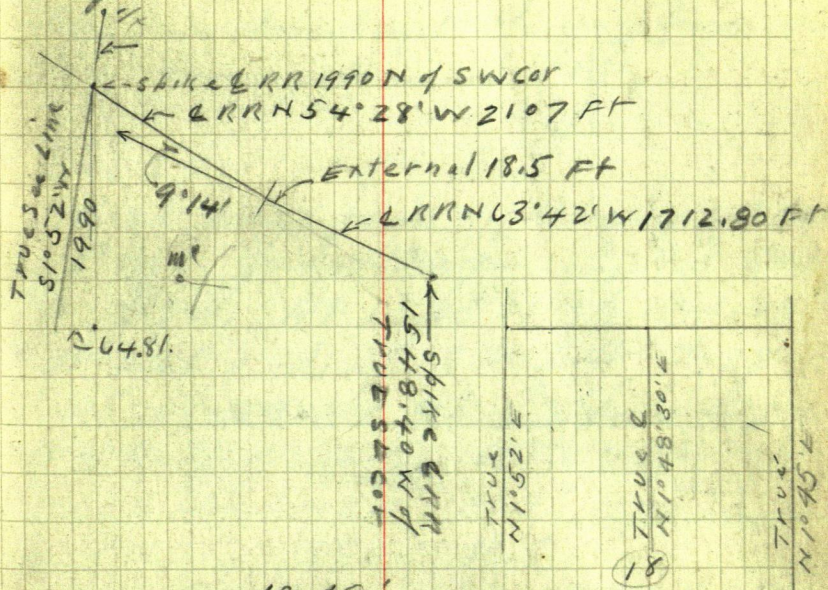 spike ℄ RR 1990 N of SW Cor
℄ RR N 54° 28' W 2107 Ft
External 18.5 Ft
9° 14'
℄ RR N 63° 42' W 1712.80 Ft
True Sec Line
S 1° 52' W
1990
64.81.
Spike ℄ RR
1548.40 W of
True SE Cor
True
N 1° 52' E
True ℄
N 1° 48' 30" E
True
N 1° 45' E
18